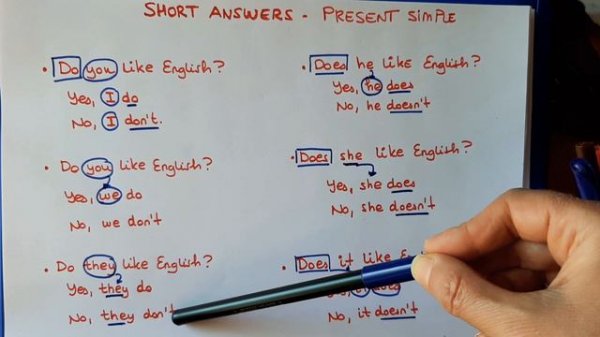 SHORT ANSWERS - PRESENT SIMPLE
• Do you like English?
Yes, I do
No, I don't.
• Do you like English?
Yes, we do
No, we don't
• Do they like English?
Yes, they do
No, they don't
• Does he like English?
Yes, he does
No, he doesn't
• Does she like English?
Yes, she does
No, she doesn't
• Does it like
No, it doesn't